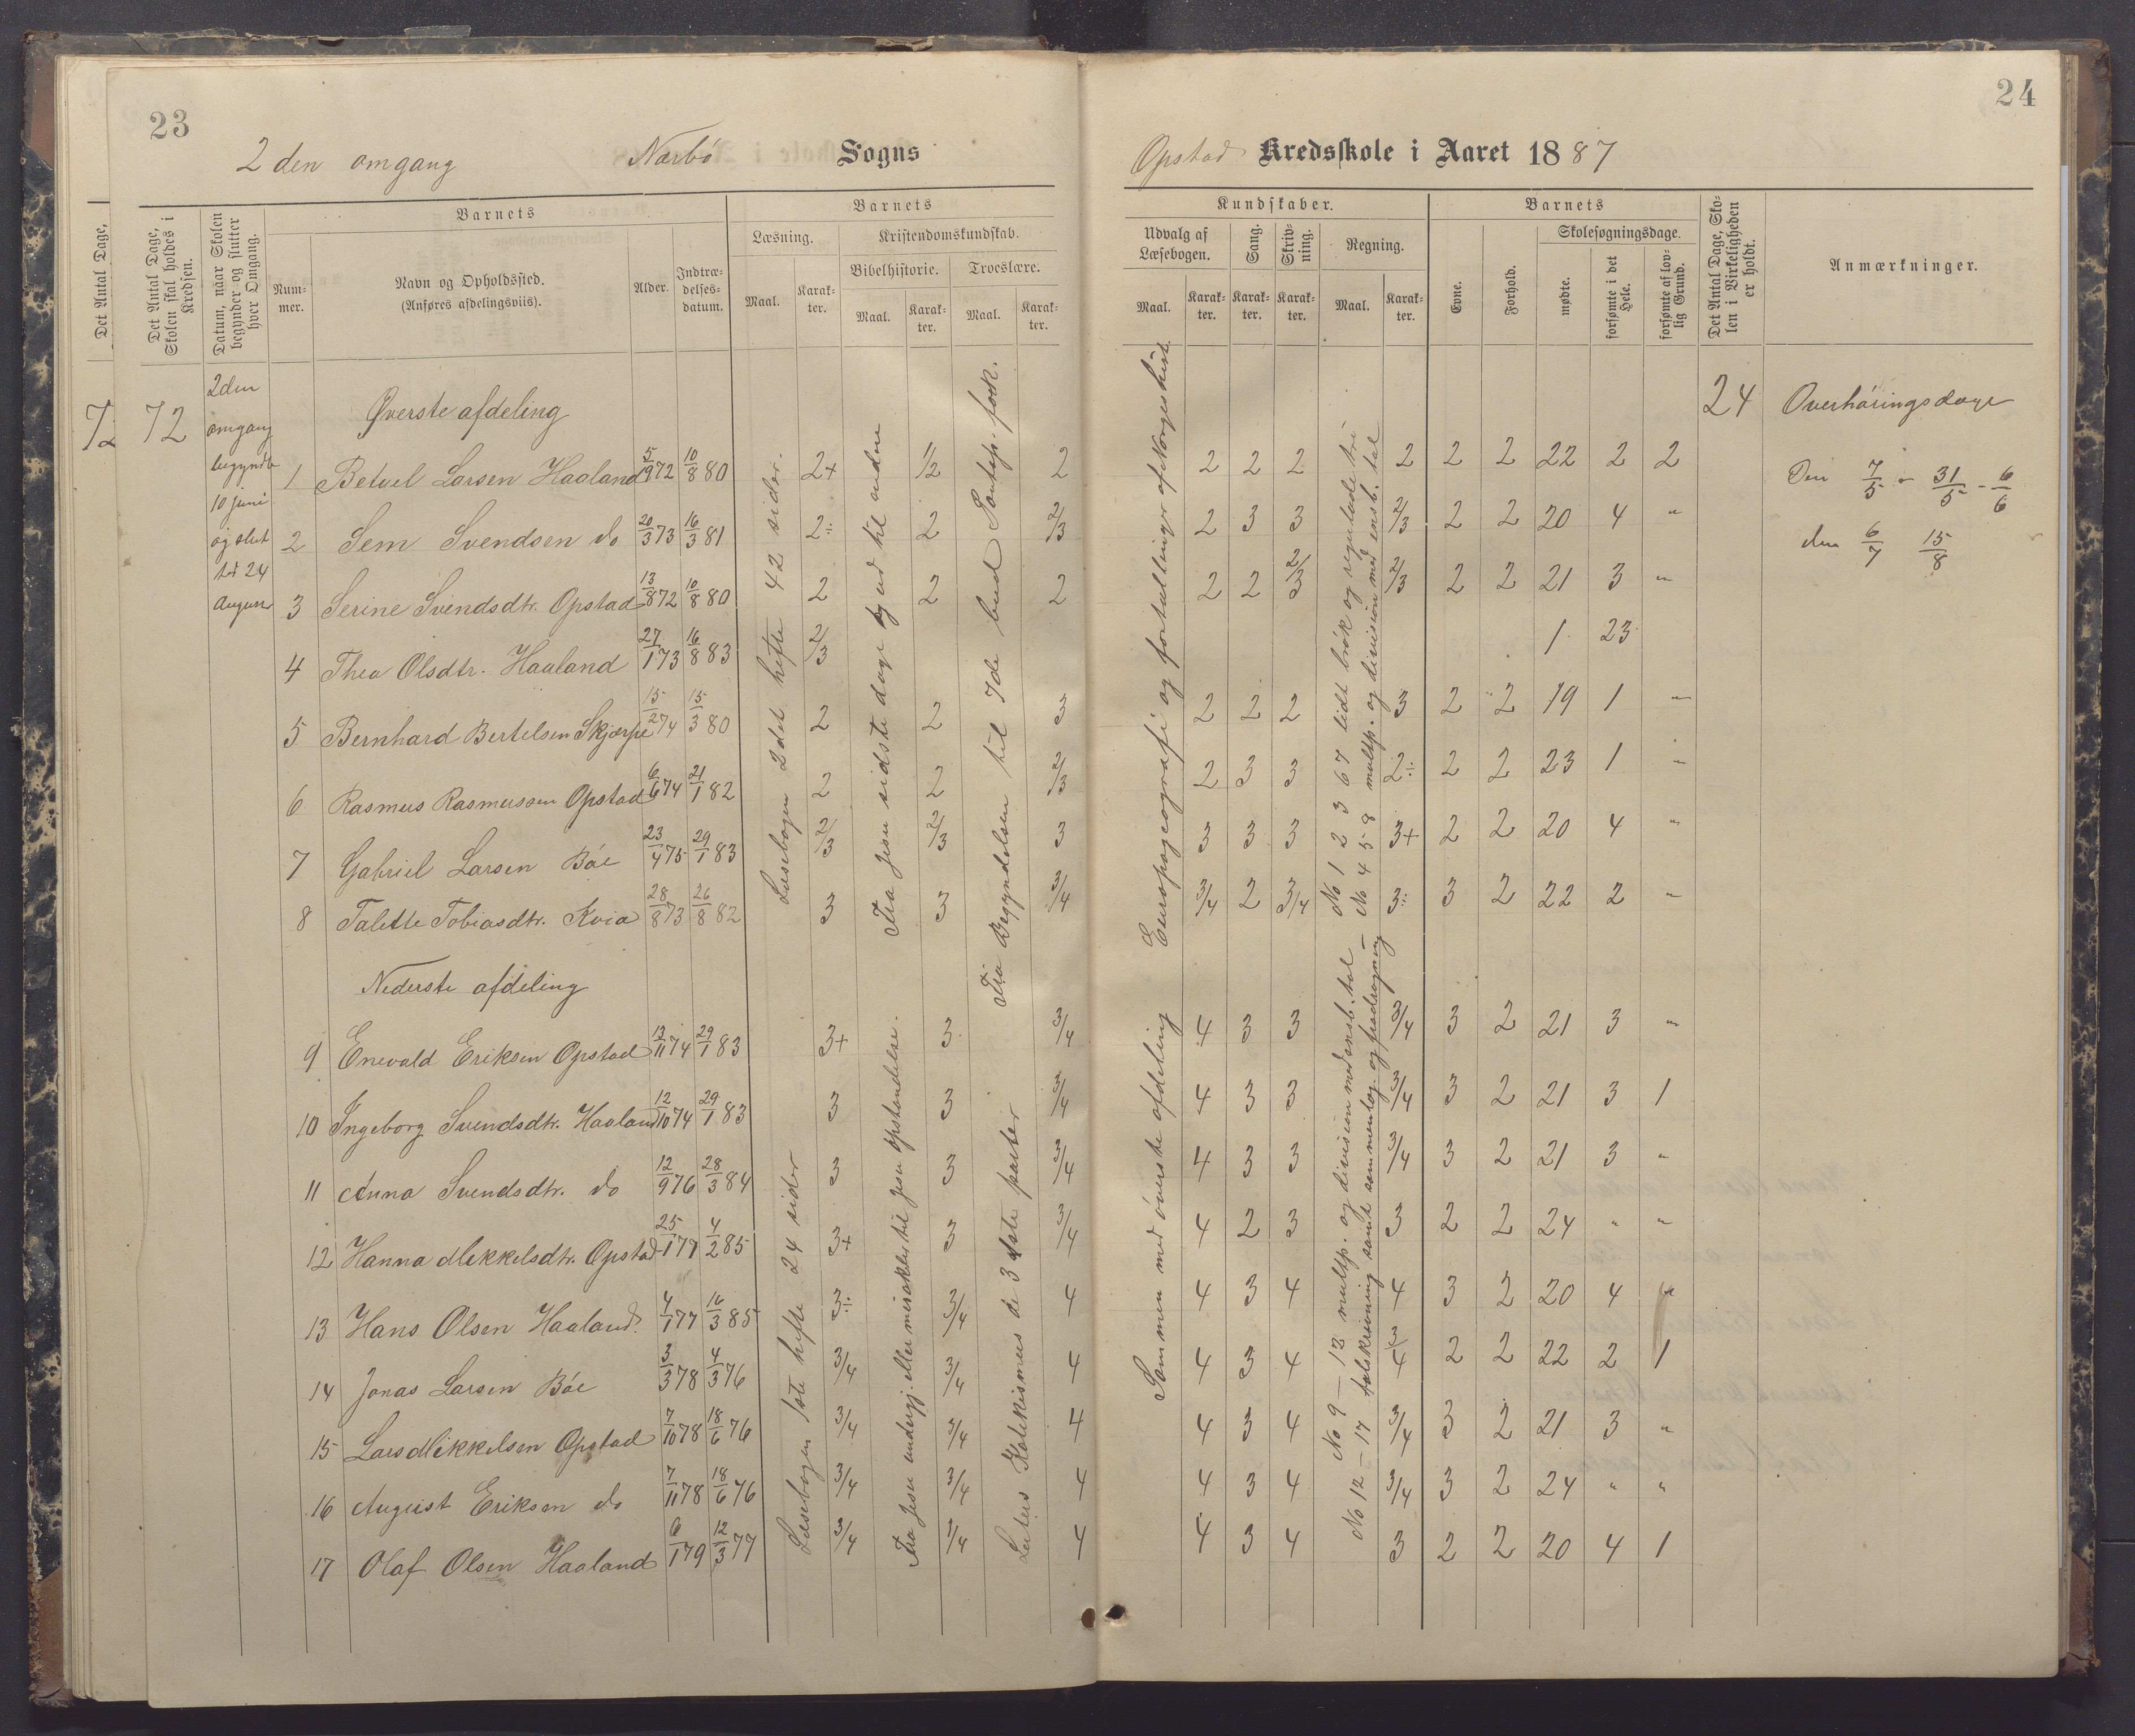 23
2den omgang Nærbö Sogns
Det Antal Dage,
Det Antal Dage, Skolen skal holdes i Kredsen.
Datum, naar Skolen begynder og slutter hver Omgang.
Barnets
Num-mer.
Navn og Opholdssted.
(Anføres afdelingsviis).
Alder.
Indtræ-delses-datum.
Barnets
Læsning.
Kristendomskundskab.
Bibelhistorie.
Troeslære.
Maal.
Karak-ter.
Maal.
Karak-ter.
Maal.
Karak-ter.
72
72
2den
omgang
begyndte
10 juni
og slut
tet 24
August
Øverste afdeling
1 Betuel Larsen Haaland 5/9 72 10/8 80 2+ 1/2 2
2 Sem Svendsen do 20/3 73 16/3 81 2÷ 2 2/3
3 Serine Svendsdtr. Opstad 13/8 72 10/8 80 2 2 2
4 Thea Olsdtr. Haaland 27/1 73 16/8 83 2/3
5 Bernhard Bertelsen Skjærpe 15/2 74 15/3 80 2 2 3
6 Rasmus Rasmussen Opstad 6/6 74 21/1 82 2 2 2/3
7 Gabriel Larsen Böe 23/4 75 29/1 83 2/3 2/3 3
8 Talette Tobiasdtr. Kvia 28/8 73 26/8 82 3 3 3/4
Nederste afdeling
9 Enevald Eriksen Opstad 13/11 74 29/1 83 3+ 3 3/4
10 Ingeborg Svendsdtr. Haaland 12/10 74 29/1 83 3 3 3/4
11 Anna Svendsdtr. do 12/9 76 28/3 84 3 3 3/4
12 Hanna Mikkelsdtr. Opstad 25/1 77 4/2 85 3+ 3 3/4
13 Hans Olsen Haaland. 4/1 77 16/3 85 3÷ 3/4 4
14 Jonas Larsen Böe 3/3 78 4/3 76 3/4 3/4 4
15 Lars Mikkelsen Opstad 7/10 78 18/6 76 3/4 3/4 4
16 August Eriksen do 7/11 78 18/6 76 3/4 3/4 4
17 Olaf Olsen Haaland 6/1 79 12/3 77 3/4 3/4 4
Læsebogen 2det hefte 42 sider.
Fra Jesu sidste dage og ud til enden
Fra Begyndelsen til 7de bud Pontop. fork.
Læsebogen 1ste hefte 24 sider
Fra Jesu undergj. eller mirakler til Jesu opstandelse.
Luters Katekismus de 3 förste parter
24
Opstad Kredsskole i Aaret 1887
Kundskaber.
Udvalg af Læsebogen.
Sang.
Skriv-ning.
Regning.
Maal.
Karak-ter.
Karak-ter.
Karak-ter.
Maal.
Karak-ter.
Barnets
Evne.
Forhold.
Skolesøgningsdage.
mødte.
forsømte i det Hele.
forsømte af lov-lig Grund.
Det Antal Dage, Sko-len i Virkeligheden er holdt.
Anmærkninger.
24 Overhöringsdage
Den 7/5 - 31/5 - 6/6
den 6/7 15/8
2 2 2 2 2 2 22 2 2
2 3 3 2/3 2 2 20 4 "
2 2 2/3 2/3 2 2 21 3 "
1 23
2 2 2 3 2 2 19 1 "
2 3 3 2÷ 2 2 23 1 "
3 3 3 3+ 2 2 20 4 "
3/4 2 3/4 3÷ 3 2 22 2 "
4 3 3 3/4 3 2 21 3 "
4 3 3 3/4 3 2 21 3 1
4 3 3 3/4 3 2 21 3 "
4 2 3 3 2 2 24 " "
4 3 4 4 3 2 20 4 "
4 3 4 3/4 2 2 22 2 1
4 3 4 3/4 3 2 21 3 "
4 3 4 3/4 3 2 24 " "
4 3 4 3 2 2 20 4 1
Europas geografi og fortællinger af Norges hist.
No 1 2 3 6 7 lidt brök og regulade tri
No 4 5 8 multip. og division med ensb. tal
Sammen med överste afdeling
No 9 – 13 multip. og division med ensb. tal –
No 12 – 17 talskrivning samt sammenlæg. og fradragning